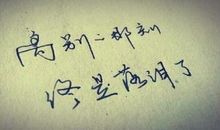 离别的那刻
终是落泪了